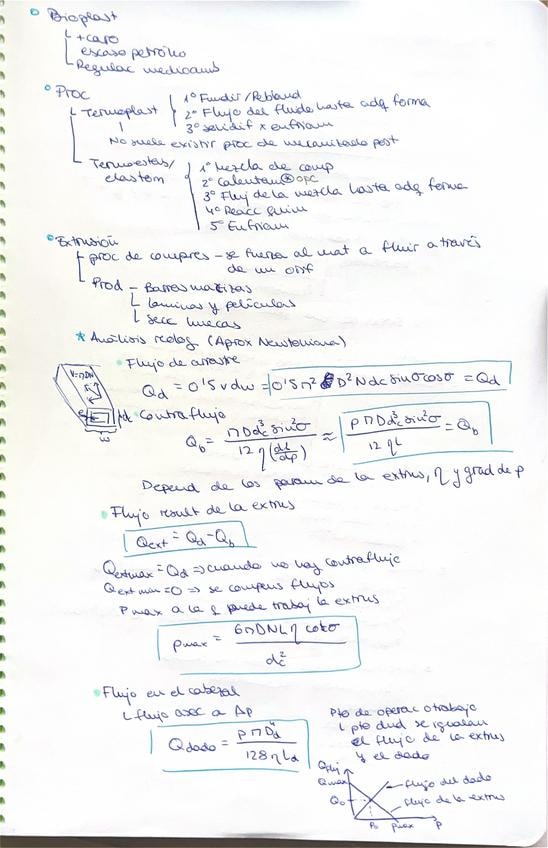 Bioplast
+ caro
escaso petróleo
Regulac medioamb
Proc
Termoplast
1º Fundir/Rebland
2º Flujo del fluido hasta adq forma
3º solidif x enfriam
No suele existir proc de mecanizado post
Termoestab/
elastom
1º Mezcla de comp
2º Calentam opc
3º Fluj de la mezcla hasta adq forma
4º Reacc quim
5º Enfriam
Extrusión
proc de compres - se fuerza al mat a fluir a través
de un orif
Prod - Barras macizas
láminas y películas
secc huecas
* Análisis reolog (Aprox Newtoniana)
Flujo de arrastre
V=πDN
Qd = 0'5 v dw = 0'5 π² D² N dc sinσ cosσ = Qd
Contraflujo
w
Qb = πD dc³ sin²σ / 12 η (dl/dp) ≈ p π D dc³ sin²σ / 12 η L = Qb
Depend de los param de la extrus, η y grad de p
Flujo result de la extrus
Qext = Qd - Qb
Qextmax = Qd => cuando no hay contraflujo
Qext min = 0 => se compens flujos
Pmax a la q puede trabaj la extrus
pmax = 6πDNLη cotσ / dc²
Flujo en el cabezal
flujo asoc a Δp
Qdado = p π Dd⁴ / 128 η Ld
Pto de operac o trabajo
pto dnd se igualan
el flujo de la extrus
y el dado
Qfluj
Qmax
Qo
flujo del dado
flujo de la extrus
Po pmax P